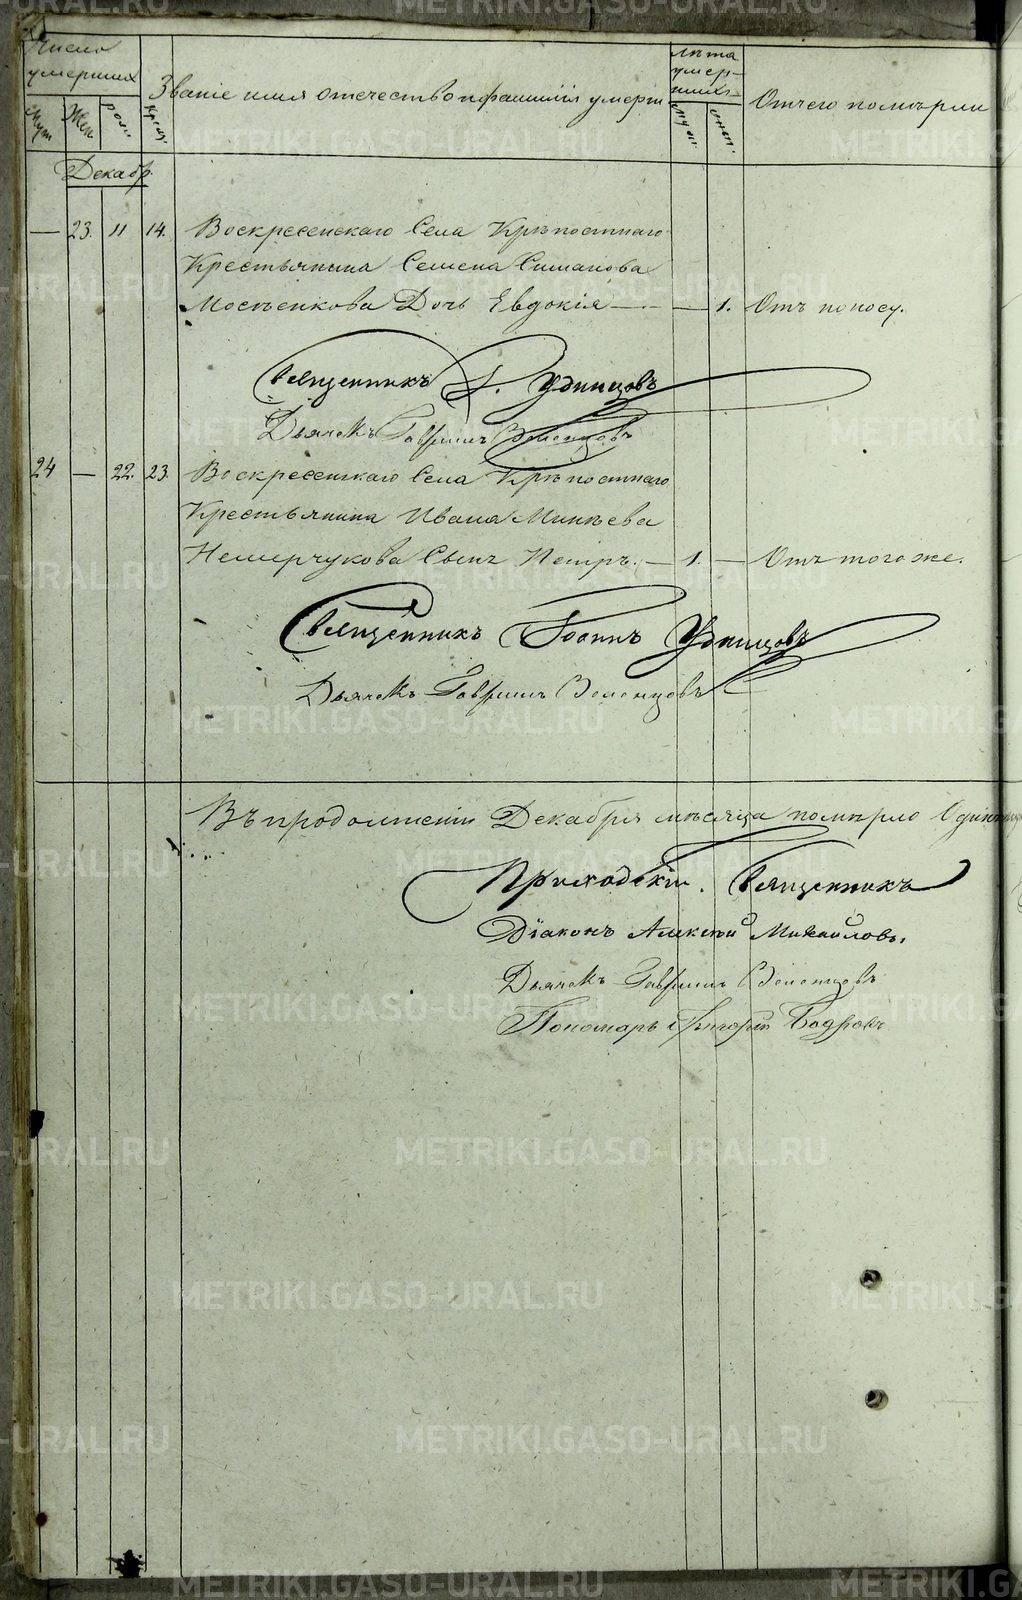 Число умершихъ
Званіе имя отечество и фамилія умерш
Лѣта умер-шихъ
Отчего померли
Муж Жен
Декабр.
— 23. 11 14. Воскресенскаго Села Крѣпостнаго
Крестьянина Семена Симанова
Дочь Евдокія — — 1. Отъ поносу.
Священникъ І. Удинцовъ
Дьячекъ Гавриилъ Зеленцовъ
24 — 22. 23. Воскресенскаго Села Крѣпостнаго
Крестьянина Ивана Минѣева
Немерчукова Сынъ Петръ. — 1. — Отъ того же.
Священникъ Іоаннъ Удинцовъ
Дьячекъ Гавриилъ Зеленцовъ
Въ продолженіи Декабря мѣсяца померло
Приходскій Священникъ
Діаконъ Алексѣй Михаиловъ.
Дьячекъ Гавриилъ Зеленцовъ
Пономарь Григорій
METRIKI.GASO-URAL.RU